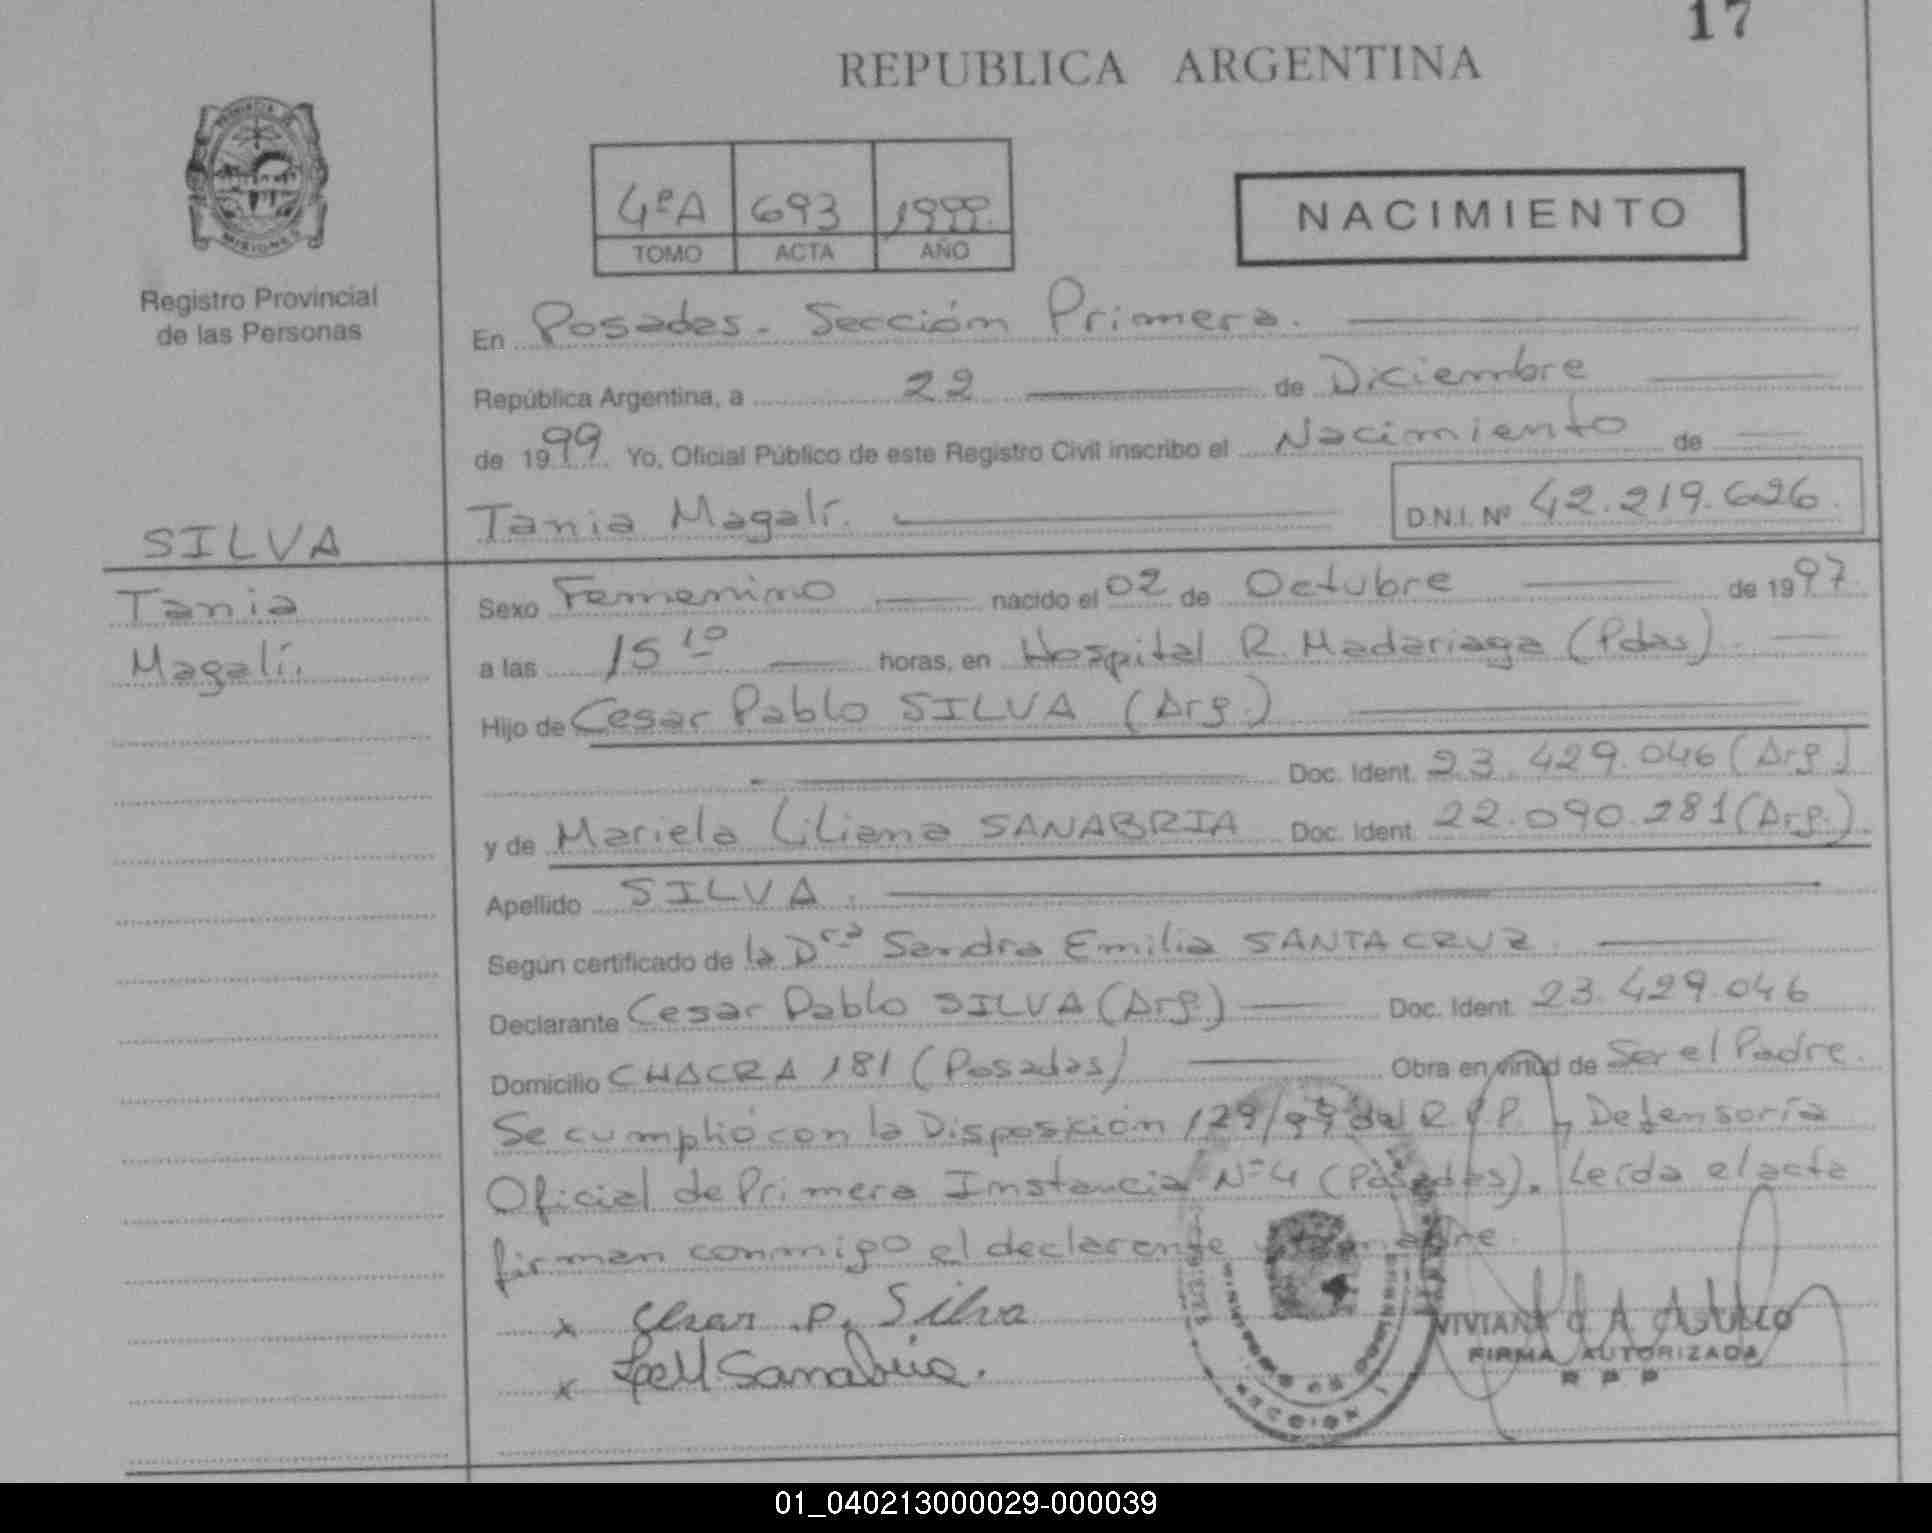 17
REPUBLICA ARGENTINA
PROVINCIA DE
MISIONES
Registro Provincial
de las Personas
4ºA 693 1999.
TOMO ACTA AÑO
NACIMIENTO
En Posadas. Sección Primera.
República Argentina, a 22 de Diciembre
de 1999 Yo, Oficial Público de este Registro Civil inscribo el Nacimiento de
Tania Magalí. D.N.I. Nº 42.219.626.
SILVA
Tania
Magalí.
Sexo Femenino nacido el 02 de Octubre de 1997.
a las 15 10 horas, en Hospital R. Madariaga (Pdas)
Hijo de Cesar Pablo SILVA (Arg.)
Doc. Ident. 23.429.046 (Arg.)
y de Mariela Liliana SANABRIA Doc. Ident. 22.090.281 (Arg.).
Apellido SILVA.
Según certificado de la Dra Sandra Emilia SANTACRUZ.
Declarante Cesar Pablo SILVA (Arg.) Doc. Ident. 23.429.046
Domicilio CHACRA 181 (Posadas) Obra en virtud de Ser el Padre.
Se cumplió con la Disposición 129/99 del R.P.P. y Defensoría
Oficial de Primera Instancia Nº 4 (Posadas). Leída el acta
firman conmigo el declarante
x Cesar P. Silva
x Sanabria.
FIRMA AUTORIZADA
R P P
SECCION 1
01_040213000029-000039